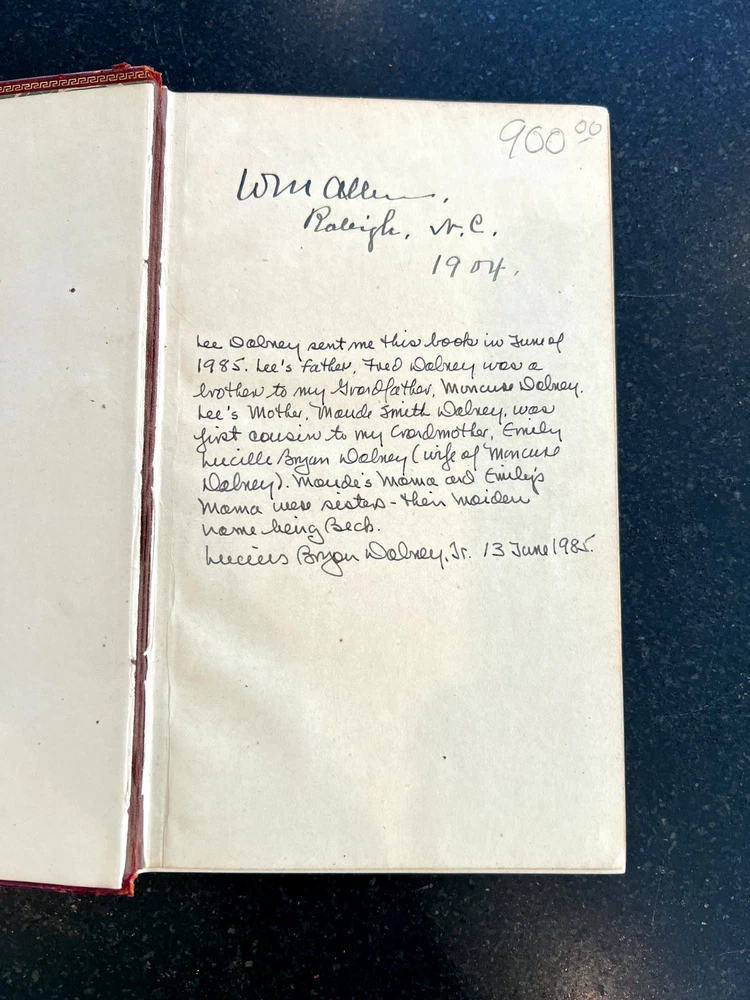 900.00
Wm Allen.
Raleigh, N.C.
1904.
Lee Dabney sent me this book in June of
1985. Lee's father, Fred Dabney was a
brother to my Grandfather, Moncure Dabney.
Lee's Mother, Maude Smith Dabney, was
first cousin to my Grandmother, Emily
Lucille Bryan Dabney (wife of Moncure
Dabney). Maude's Mama and Emily's
Mama were sisters - their maiden
name being Beck.
Lucius Bryan Dabney, Jr. 13 June 1985.